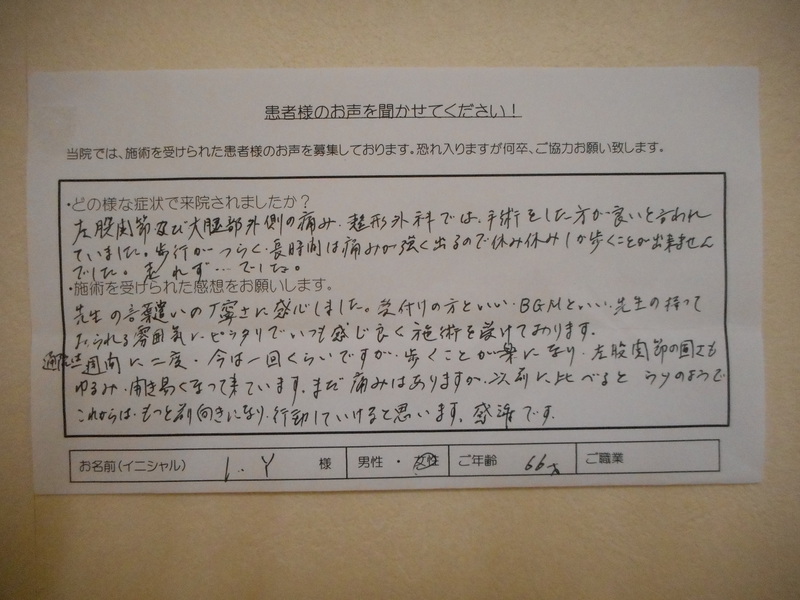 患者様のお声を聞かせてください!
当院では、施術を受けられた患者様のお声を募集しております。恐れ入りますが何卒、ご協力お願い致します。
・どの様な症状で来院されましたか?
左股関節及び大腿部外側の痛み、整形外科では、手術をした方が良いと言われ
ていました。歩行がつらく、長時間は痛みが強く出るので休み休みしか歩くことが出来ません
でした。走れず…でしたね。
・施術を受けられた感想をお願いします。
先生の言葉遣いの丁寧さに感心しました。受付けの方といい、BGMといい、先生の持って
おられる雰囲気にピッタリでいつも感じ良く施術を受けております。
通院は週間に二度・今は一回くらいですが、歩くことが楽になり、左股関節の固さも
ゆるみ、開き易くなって来ています。まだ痛みはありますが、以前に比べるとうそのようで
これからは、もっと前向きになり、行動していけると思います。感謝です。
お名前(イニシャル) I.Y 様 男性・女性 ご年齢 66才 ご職業